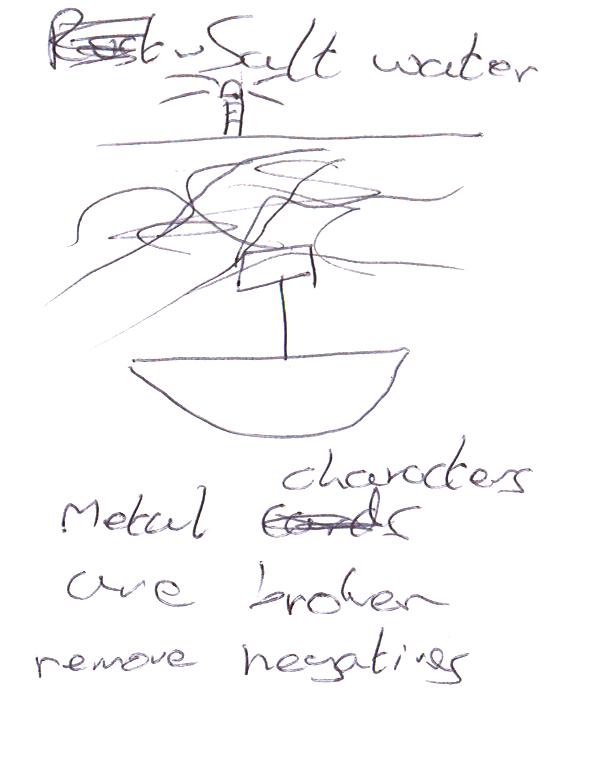 Salt water
characters
Metal
are broken
remove negatives